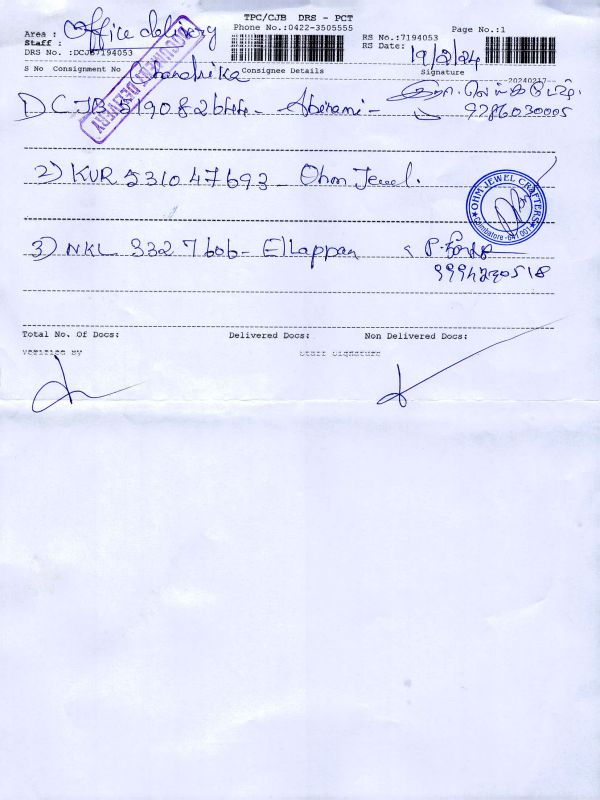 TPC/CJB DRS - PCT
Phone No.:0422-3505555
Page No.:1
Area : Office delivery
RS No.:7194053
Staff : Chandrika
RS Date: 19/2/24
DRS No. :DCJB7194053
DOCUMENT DELIVERY
S No Consignment No Consignee Details Signature
20240217
1) CJB 519082644 - Abirami -
9786030005
2) KUR 531047693 - Ohm Jewel.
OHM JEWEL CRAFTERS
Coimbatore - 641 001
3) NKL 3327606 - Ellappan
9994230518
Total No. Of Docs: Delivered Docs: Non Delivered Docs:
Verified By Staff Signature